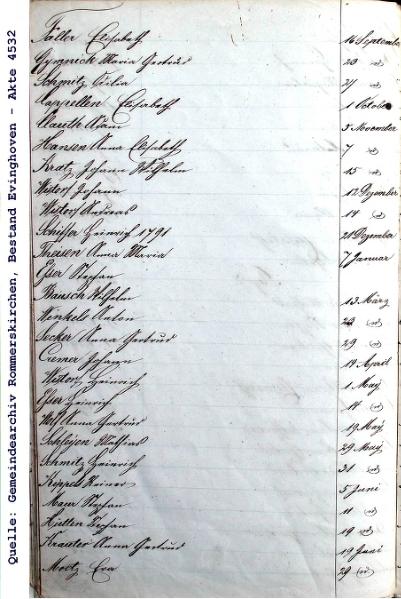 Quelle: Gemeindearchiv Rommerskirchen, Bestand Evinghoven - Akte 4532
Faller Elisabeth 16 September
Gymnich Maria Gertrud 23 "
Schmitz Cilia 27 "
Cappellen Elisabeth 1 October
Clauth Adam 5 November
Hansen Anna Elisabeth 7 "
Kratz Johann Wilhelm 15 "
Wistorf Johann 12 Dezember
Wistorf Andreas 14 "
Schiffer Heinrich 1791 28 Dezember
Theisen Anna Maria 7 Januar
Esser Stephan
Bausch Wilhelm 13 März
Winkels Anton 23 "
Secker Anna Gertrud 29 "
Cremer Johann 14 April
Wistorf Heinrich 1 May
Esser Heinrich 14 "
Wolf Anna Gertrud 19 May
Schleijen Mathias 29 May
Schmitz Heinrich 31 "
Kippel Reiner 5 Juni
Maur Stephan 11 "
Hütten Stephan 19 "
Krauter Anna Gertrud 19 Juni
Moetz Eva 29 "